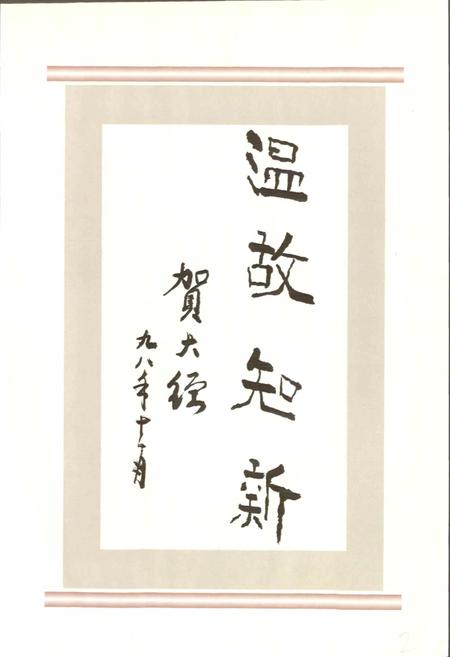 温故知新
賀大経
九八年十一月
2